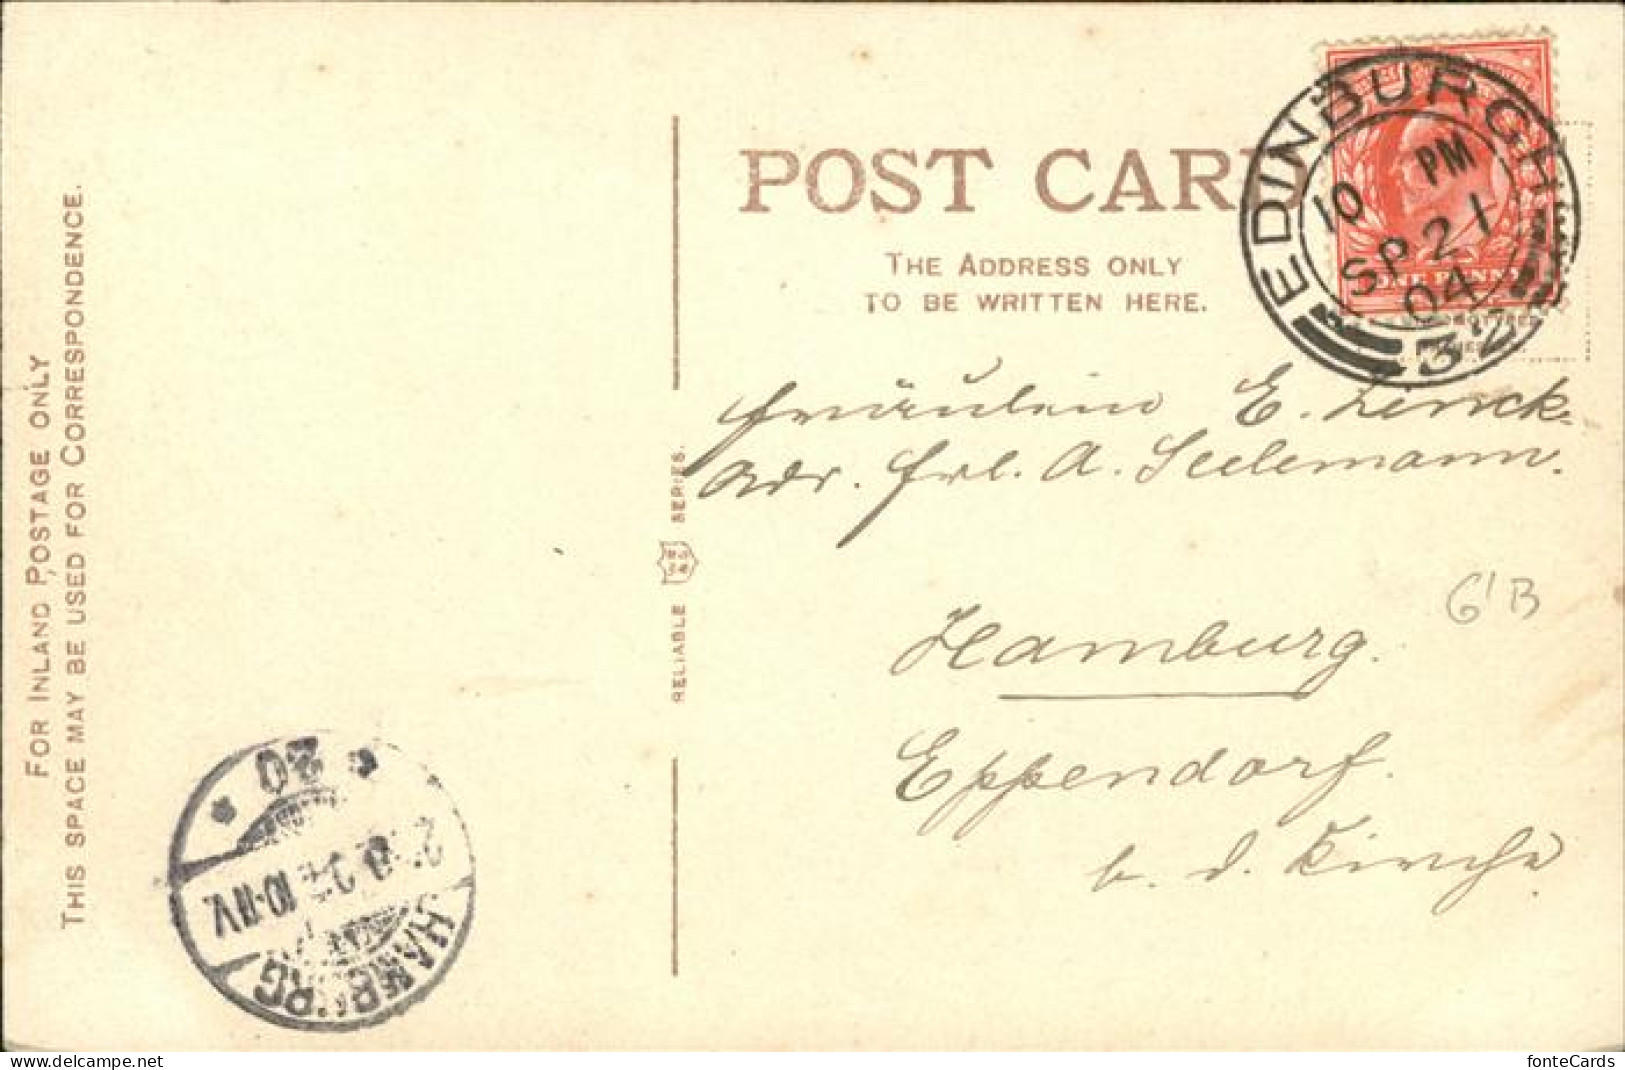 FOR INLAND POSTAGE ONLY
THIS SPACE MAY BE USED FOR CORRESPONDENCE.
POST CARD
THE ADDRESS ONLY
TO BE WRITTEN HERE.
EDINBURGH
10 PM
SP 21
04
32
RELIABLE SERIES.
Fräulein E. Zinck.
Adr. Frl. A. Seelemann.
Hamburg.
Eppendorf.
b. d. Kirche
G'B
HAMBURG
10-11V.
20
delcampe.net
fonteCards